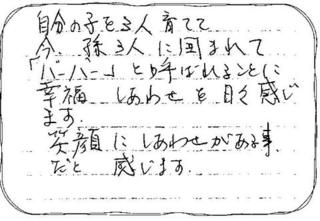 自分の子を3人育てて
今、孫3人に囲まれて
「バーバー」と呼ばれることに
幸福 しあわせを日々感じ
ます。
笑顔にしあわせがある事
だと 感じます。